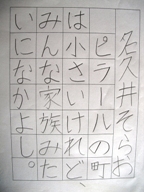 名久井そらお
ピラールの町
は小さいけれど、
みんな家族みた
いになかよし。